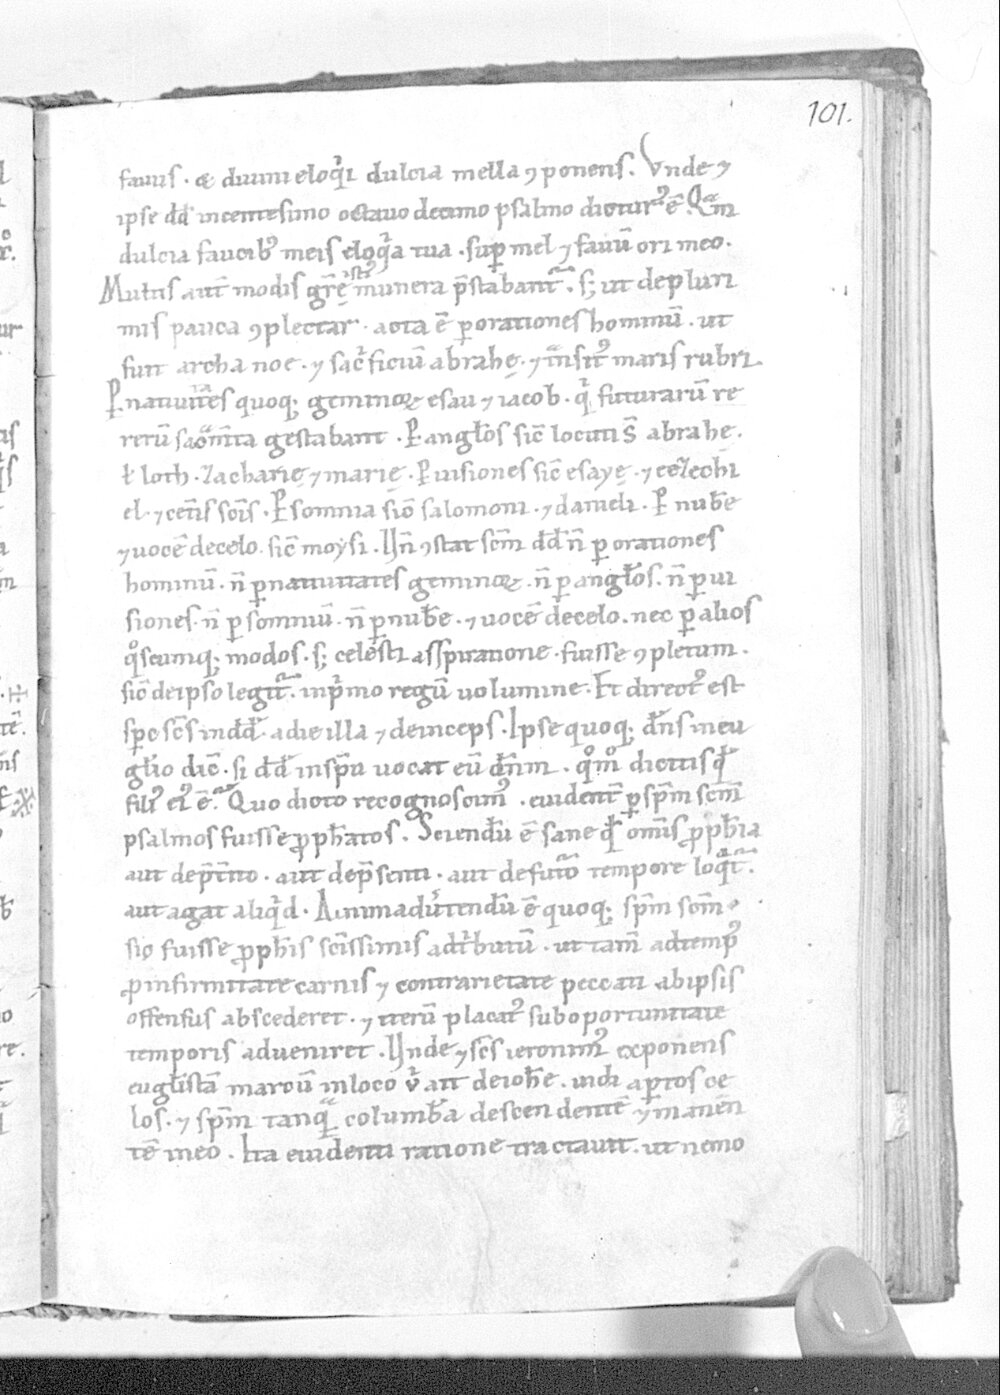 101.
fauus · & diuini eloq̇i dulcia mella ꝯponens. Vnde ⁊
ipse dd̄ in centesimo octauo decimo psalmo dictur᷒ ē. Qua̅m
dulcia faucib᷒ meis eloq̇a tua · suꝑ mel ⁊ fauū ori meo.
Multis aut̄ modis gr̄ę ista munera p̄stabant᷑. s; ut de pluri
mis pauca ꝯplectar · acta ē ꝑ orationes hominū · ut
fuit archa noe · ⁊ sac̍ficiū abrahę · ⁊ t̾nsit᷒ maris rubri.
Ꝑ natiuitates quoq; geminoꝝ esau ⁊ iacob · q̍ futurarū re
rerū sac̾m̄ta gestabant · Ꝑ angl̄os sic̄ locuti s̄ abrahę.
ł loth · zacharię ⁊ marię · Ꝑ uisiones sic̄ esayę · ⁊ ezechi
el · ⁊ cet̄is sc̄is · Ꝑ somnia sic̄ salomoni · ⁊ danieli · Ꝑ nube̅
⁊ uoce̅ de celo · sic̄ moysi · Un̄ ꝯstat scm̄ dd̄ n̄ ꝑ orationes
hominū · n̄ ꝑ natiuitates geminoꝝ · n̄ ꝑ angl̄os · n̄ ꝑ ui
siones · n̄ ꝑ somniū · n̄ ꝑ nube̅ · ⁊ uoce̅ de celo · nec ꝑ alios
q̊scumq; modos · s; celesti asspiratione · fuisse ꝯpletum ·
sic̄ de ipso legit᷑ · in p̍mo regū uolumine · Et direct᷒ est
sp̄c sc̄s in dd̄ · a die illa ⁊ deinceps · Ipse quoq; dn̄s in eu
gl̄io dic̄ · si dd̄ in sp̄u uocat eū dn̄m · q̊m̊ dicitis qd̄
fili᷒ ei᷒ ē. Quo dicto recognoscim᷒ · euident̄ ꝑ sp̄m scm̄
psalmos fuisse ꝓph̄atos · Sciendū ē sane qd̄ om̄is ꝓph̄ia
aut de p̄t̄ito · aut de p̄senti · aut de fut̾o tempore loq̍t᷑.
aut agat aliq̍d · Animadu̾tendū ē quoq; sp̄m scm̄
sic̄ fuisse ꝓph̄is sc̄issimis adt̍butū · ut tam̄ ad temp᷒
ꝓ infirmitate carnis ⁊ contrarietate peccati ab ipsis
offensus abscederet · ⁊ iterū placat᷒ sub oportunitate
temporis adueniret · Unde ⁊ sc̄s ieronim᷒ exponens
eugl̄istam marcū in loco u̍ ait de ioh̄e · uidi aꝑtos ce
los · ⁊ sp̄m tanq̾ columba̅ descendente̅ ⁊ manen
te̅ in eo · Ita euidenti ratione tractauit · ut nemo